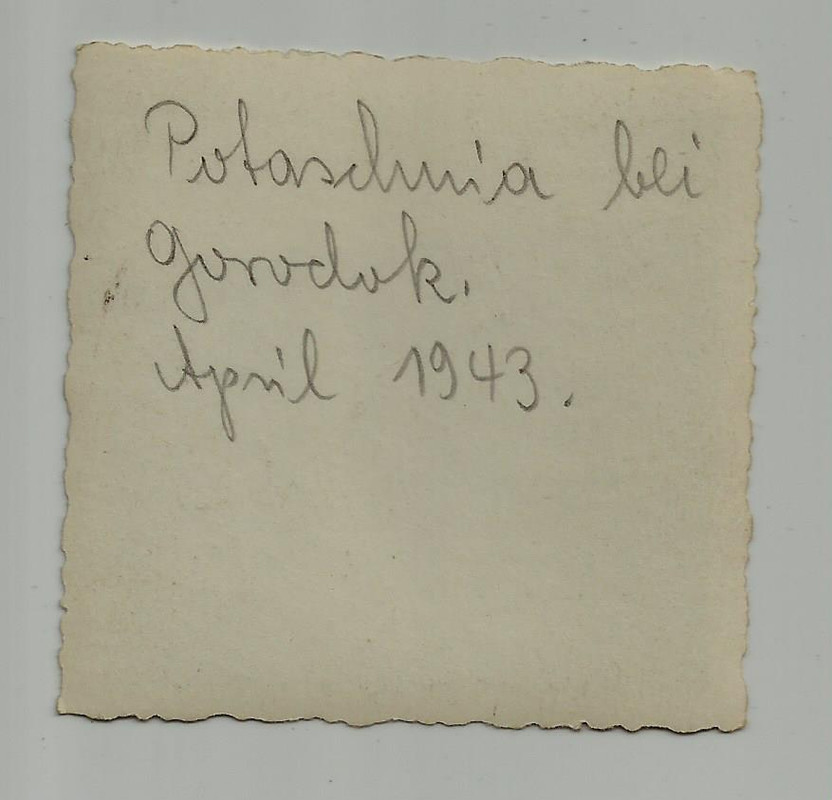 Potaschnia bei
Gorodok.
April 1943.